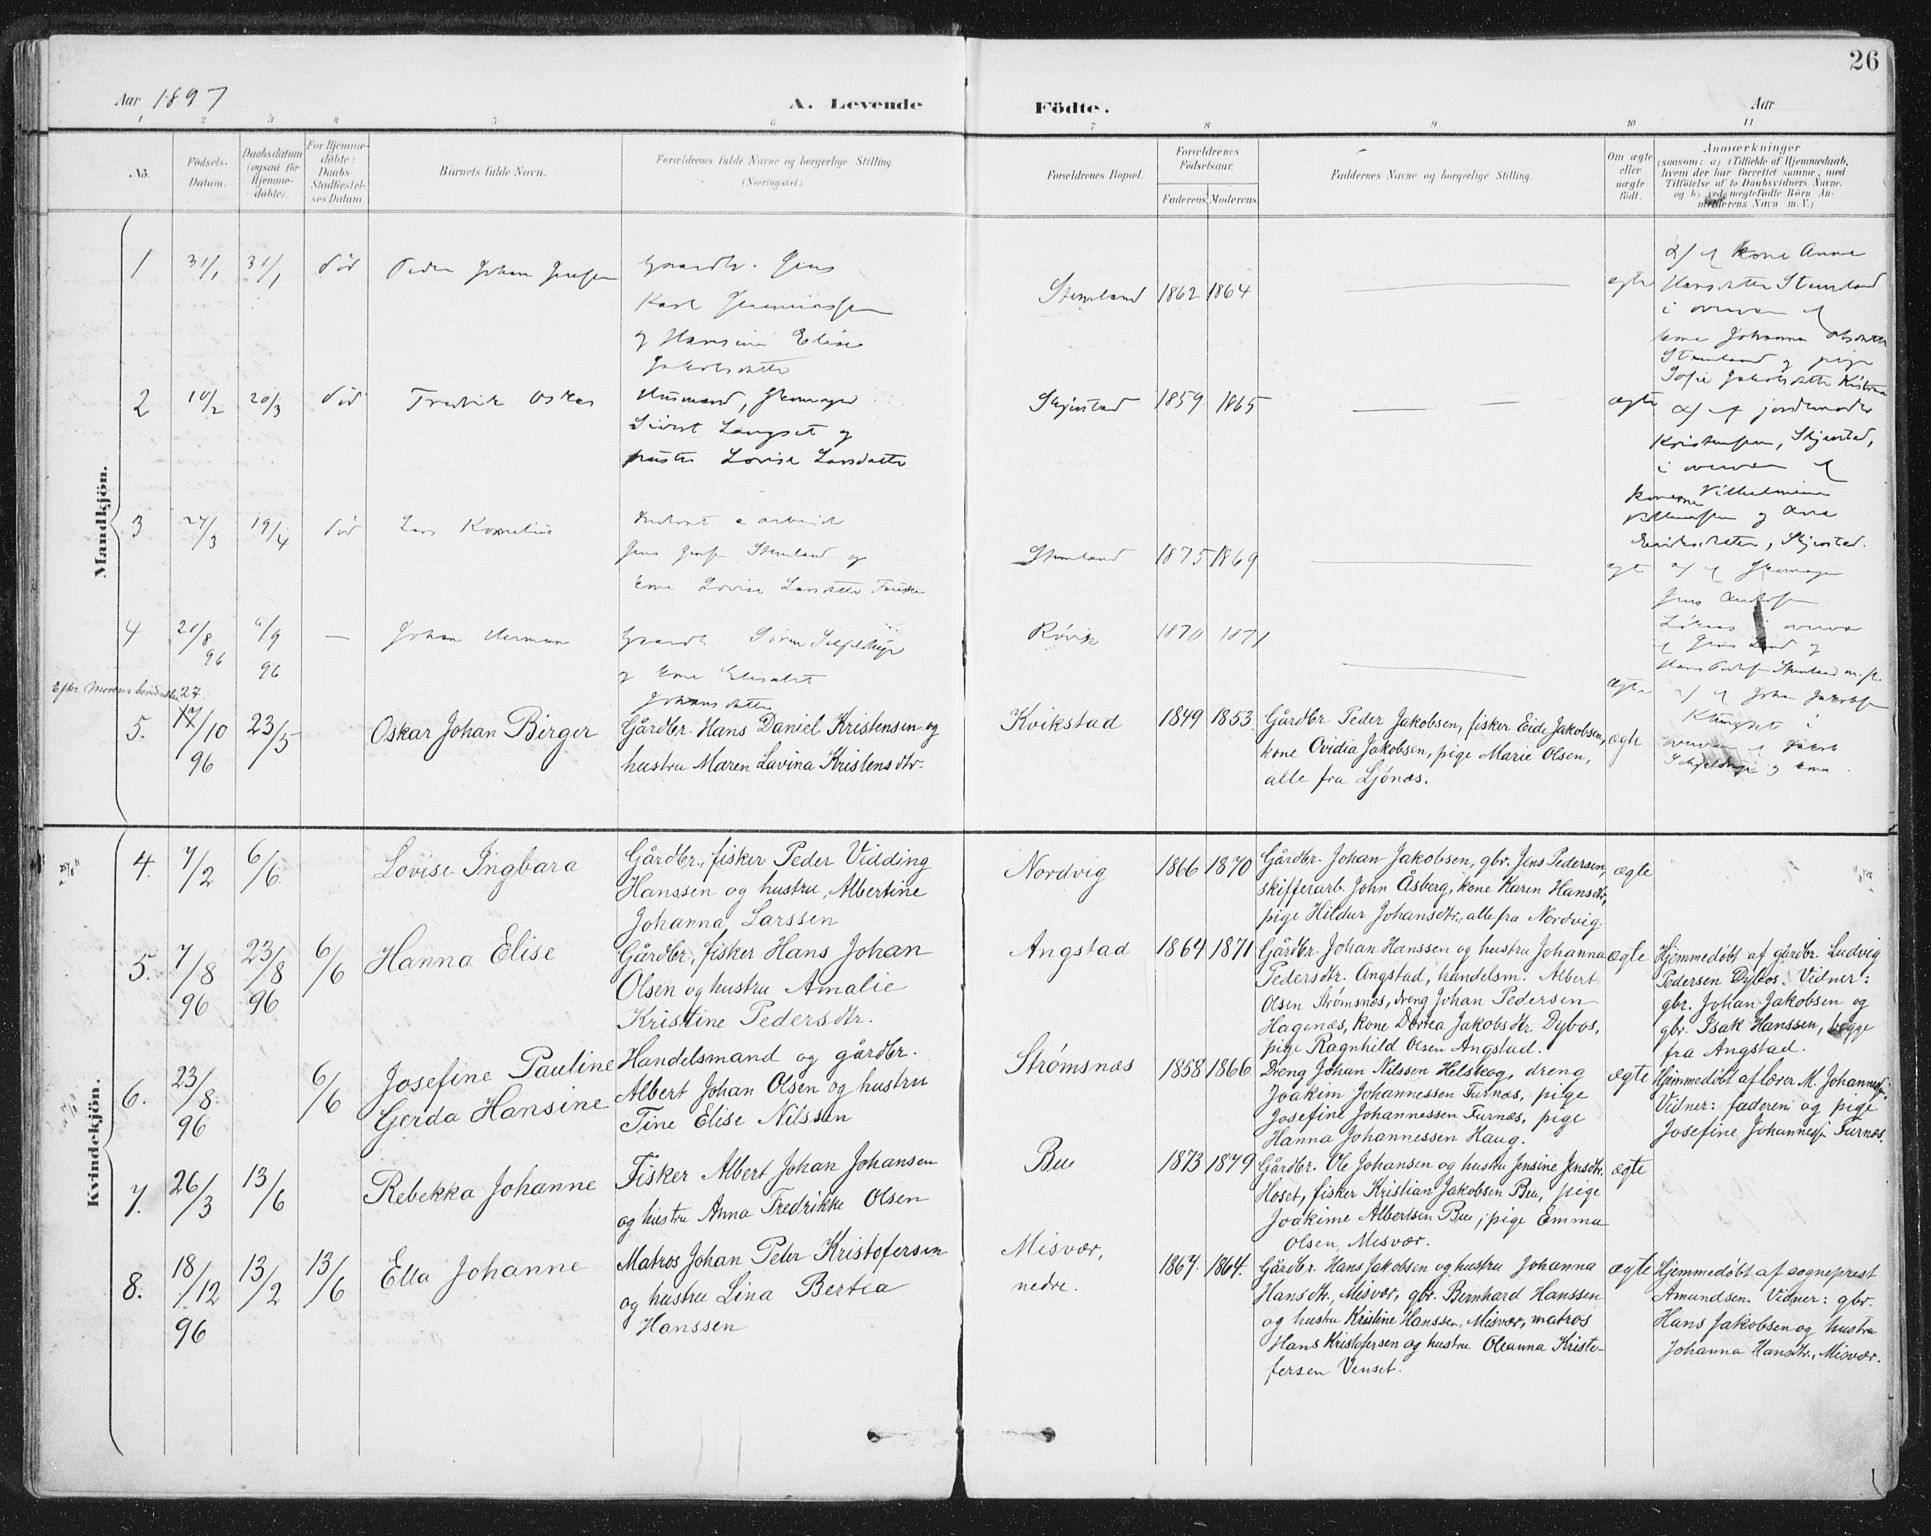 26
Aar 1897
A. Levende
Födte.
Aar
1 2 3 4 5 6 7 8 9 10 11
No.
Födsels-
Datum.
Daabsdatum
(ogsaa for
Hjemme-
döbte).
For Hjemme-
döbte:
Daabs-
Stadfæstel-
ses Datum.
Barnets fulde Navn.
Forældrenes fulde Navne og borgerlige Stilling
(Næringsvei.)
Forældrenes Bopæl.
Forældrenes
Födselsaar.
Faderens. Moderens.
Faddernes Navne og borgerlige Stilling.
Om ægte
eller
uægte
födt.
Anmærkninger
(saasom: a) i Tilfælde af Hjemmedaab,
hvem der har forrettet samme, med
Tilföielse af to Daabsvidners Navne.
og b) ved uægtefödte Börn An-
melderens Navn m. V.)
Mandkjön.
1 31/1 31/1 død Peder Johan Jensen
Gaardbr. Jens
Karl Jeremiassen
og Hansine Elise
Jakobsdatter
Stemland 1862 1864
ægte
a/ af kone Anne
Hansdatter Stemland
i overvær af
kone Johanna Olsdatter
Stemland og pige
Sofie Jakobsdatter
2 10/2 20/3 død Fredrik Oskar
Husmand, skomager
Sivert Langset og
hustru Lovise Larsdatter
Skjerstad 1859 1865
ægte
a/ af jordemoder
Kristensen, Skjerstad,
i overvær af
konerne Vilhelmine
og
Eriksdatter, Skjerstad.
3 27/3 19/4 død Lars Kornelius
arbeid
Jens Stemland og
kone Lovise Larsdatter Fauske
Stemland 1875 1869
ægt
a/ af Skomager
Jens
i overvær
af Jens og
Stemland
4 20/8 96 6/9 96 — Johan Herman
Gaardb. Sören
og kone Elisabet
Johansdatter
Røvik 1870 1871
ægte
a/ af Johan Jakobsen
Klungset i
overvær af
og kone
Efter Moderens
27
17/10
96
5. 23/5 Oskar Johan Birger
Gårdbr. Hans Daniel Kristensen og
hustru Maren Lavina Kristensdtr.
Kvikstad 1849 1853
Gårdbr. Peder Jakobsen, fisker Eide Jakobsen,
kone Ovidia Jakobsen, pige Marie Olsen,
alle fra Ljönæs.
ægte
Kvindekjön.
4. 7/2 6/6 Lovise Ingbara
Gårdbr., fisker Peder Vidding
Hanssen og hustru, Albertine
Johanna Larssen
Nordvig 1866 1870
Gårdbr. Johan Jakobsen, gbr. Jens Pedersen,
skifferarb. John Åsberg, kone Karen Hansdtr,
pige Hildur Johansdtr., alle fra Nordvig.
ægte
5. 7/8 96 23/8 96 6/6 Hanna Elise
Gårdbr., fisker Hans Johan
Olsen og hustru Amalie
Kristine Pedersdtr.
Angstad 1864 1871
Gårdbr. Johan Hanssen og hustru Johanna
Pedersdtr. Angstad, handelsm. Albert
Olsen Strømsnæs, dreng Johan Pedersen
Hagenæs, kone Dortea Jakobsdtr. Dybos,
pige Ragnhild Olsen Angstad.
ægte
Hjemmedøbt af gårdbr. Ludvig
Pedersen Dybos. Vidner:
gbr. Johan Jakobsen og
gbr. Isak Hanssen, begge
fra Angstad.
6. 23/8 96 6/6 Josefine Pauline
Gerda Hansine
Handelsmand og gårdbr.
Albert Johan Olsen og hustru
Tine Elise Nilssen
Strømsnæs 1858 1866
Dreng Johan Nilssen Helskog, dreng
Joakim Johannessen Furnæs, pige
Josefine Johannessen Furnæs, pige
Hanna Johannessen Haug.
ægte
Hjemmedøbt af lærer M. Johannessen,
Vidner: faderen og pige
Josefine Johannessen Furnæs.
7. 26/3 13/6 Rebekka Johanne
Fisker Albert Johan Johansen
og hustru Anna Fredrikke Olsen
Bu 1873 1879
Gårdbr. Ole Johansen og hustru Jensine Jensdtr.
Hoset, fisker Kristian Jakobsen Bu, pige
Joakime Albertsen Bu, pige Emma
Olsen, Misvær.
ægte
8. 18/12 96 13/2 13/6 Ella Johanne
Matros Johan Peter Kristofersen
og hustru Lina Bertea
Hanssen
Misvær,
nedre.
1867. 1864.
Gårdbr. Hans Jakobsen og hustru Johanna
Hansdtr. Misvær, gbr. Bernhard Hanssen
og hustru Kristine Hanssen, Misvær, matros
Hans Kristofersen og hustru Oleanna Kristo-
fersen Venset.
ægte
Hjemmedøbt af sogneprest
Amundsen. Vidner: gbr.
Hans Jakobsen og hustru
Johanna Hansdtr., Misvær.